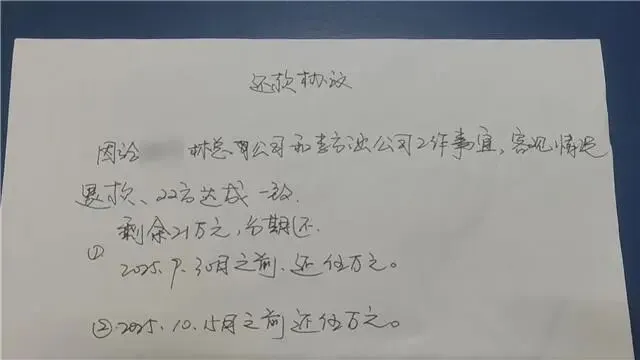 还款协议
林总 公司和李 公司工作事宜,客观情况
款、22 达成一致.
剩余21万元,分期还.
① 2025.9.30日之前.还 万元。
②2025.10.15日之前还 万元。